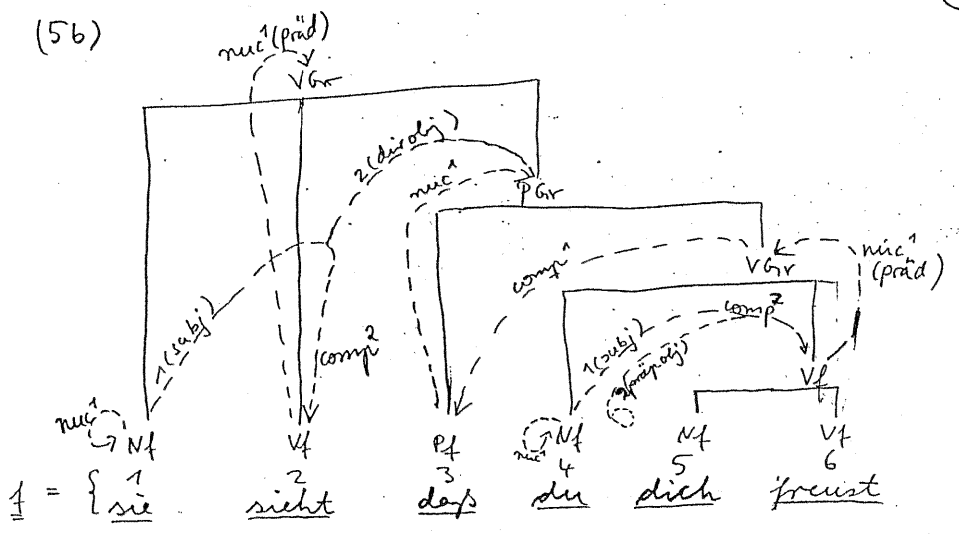 (5b)
nuc¹(präd)
VGr
2(dirobj)
nuc¹
PGr
comp¹
VGr
nuc¹
(präd)
1(subj)
comp²
1(subj)
2(präpobj)
comp²
Vf
nuc¹
Nf
Vf
Pf
nuc¹
Nf
Nf
Vf
1 2 3 4 5 6
f = { sie sieht daß du dich freust